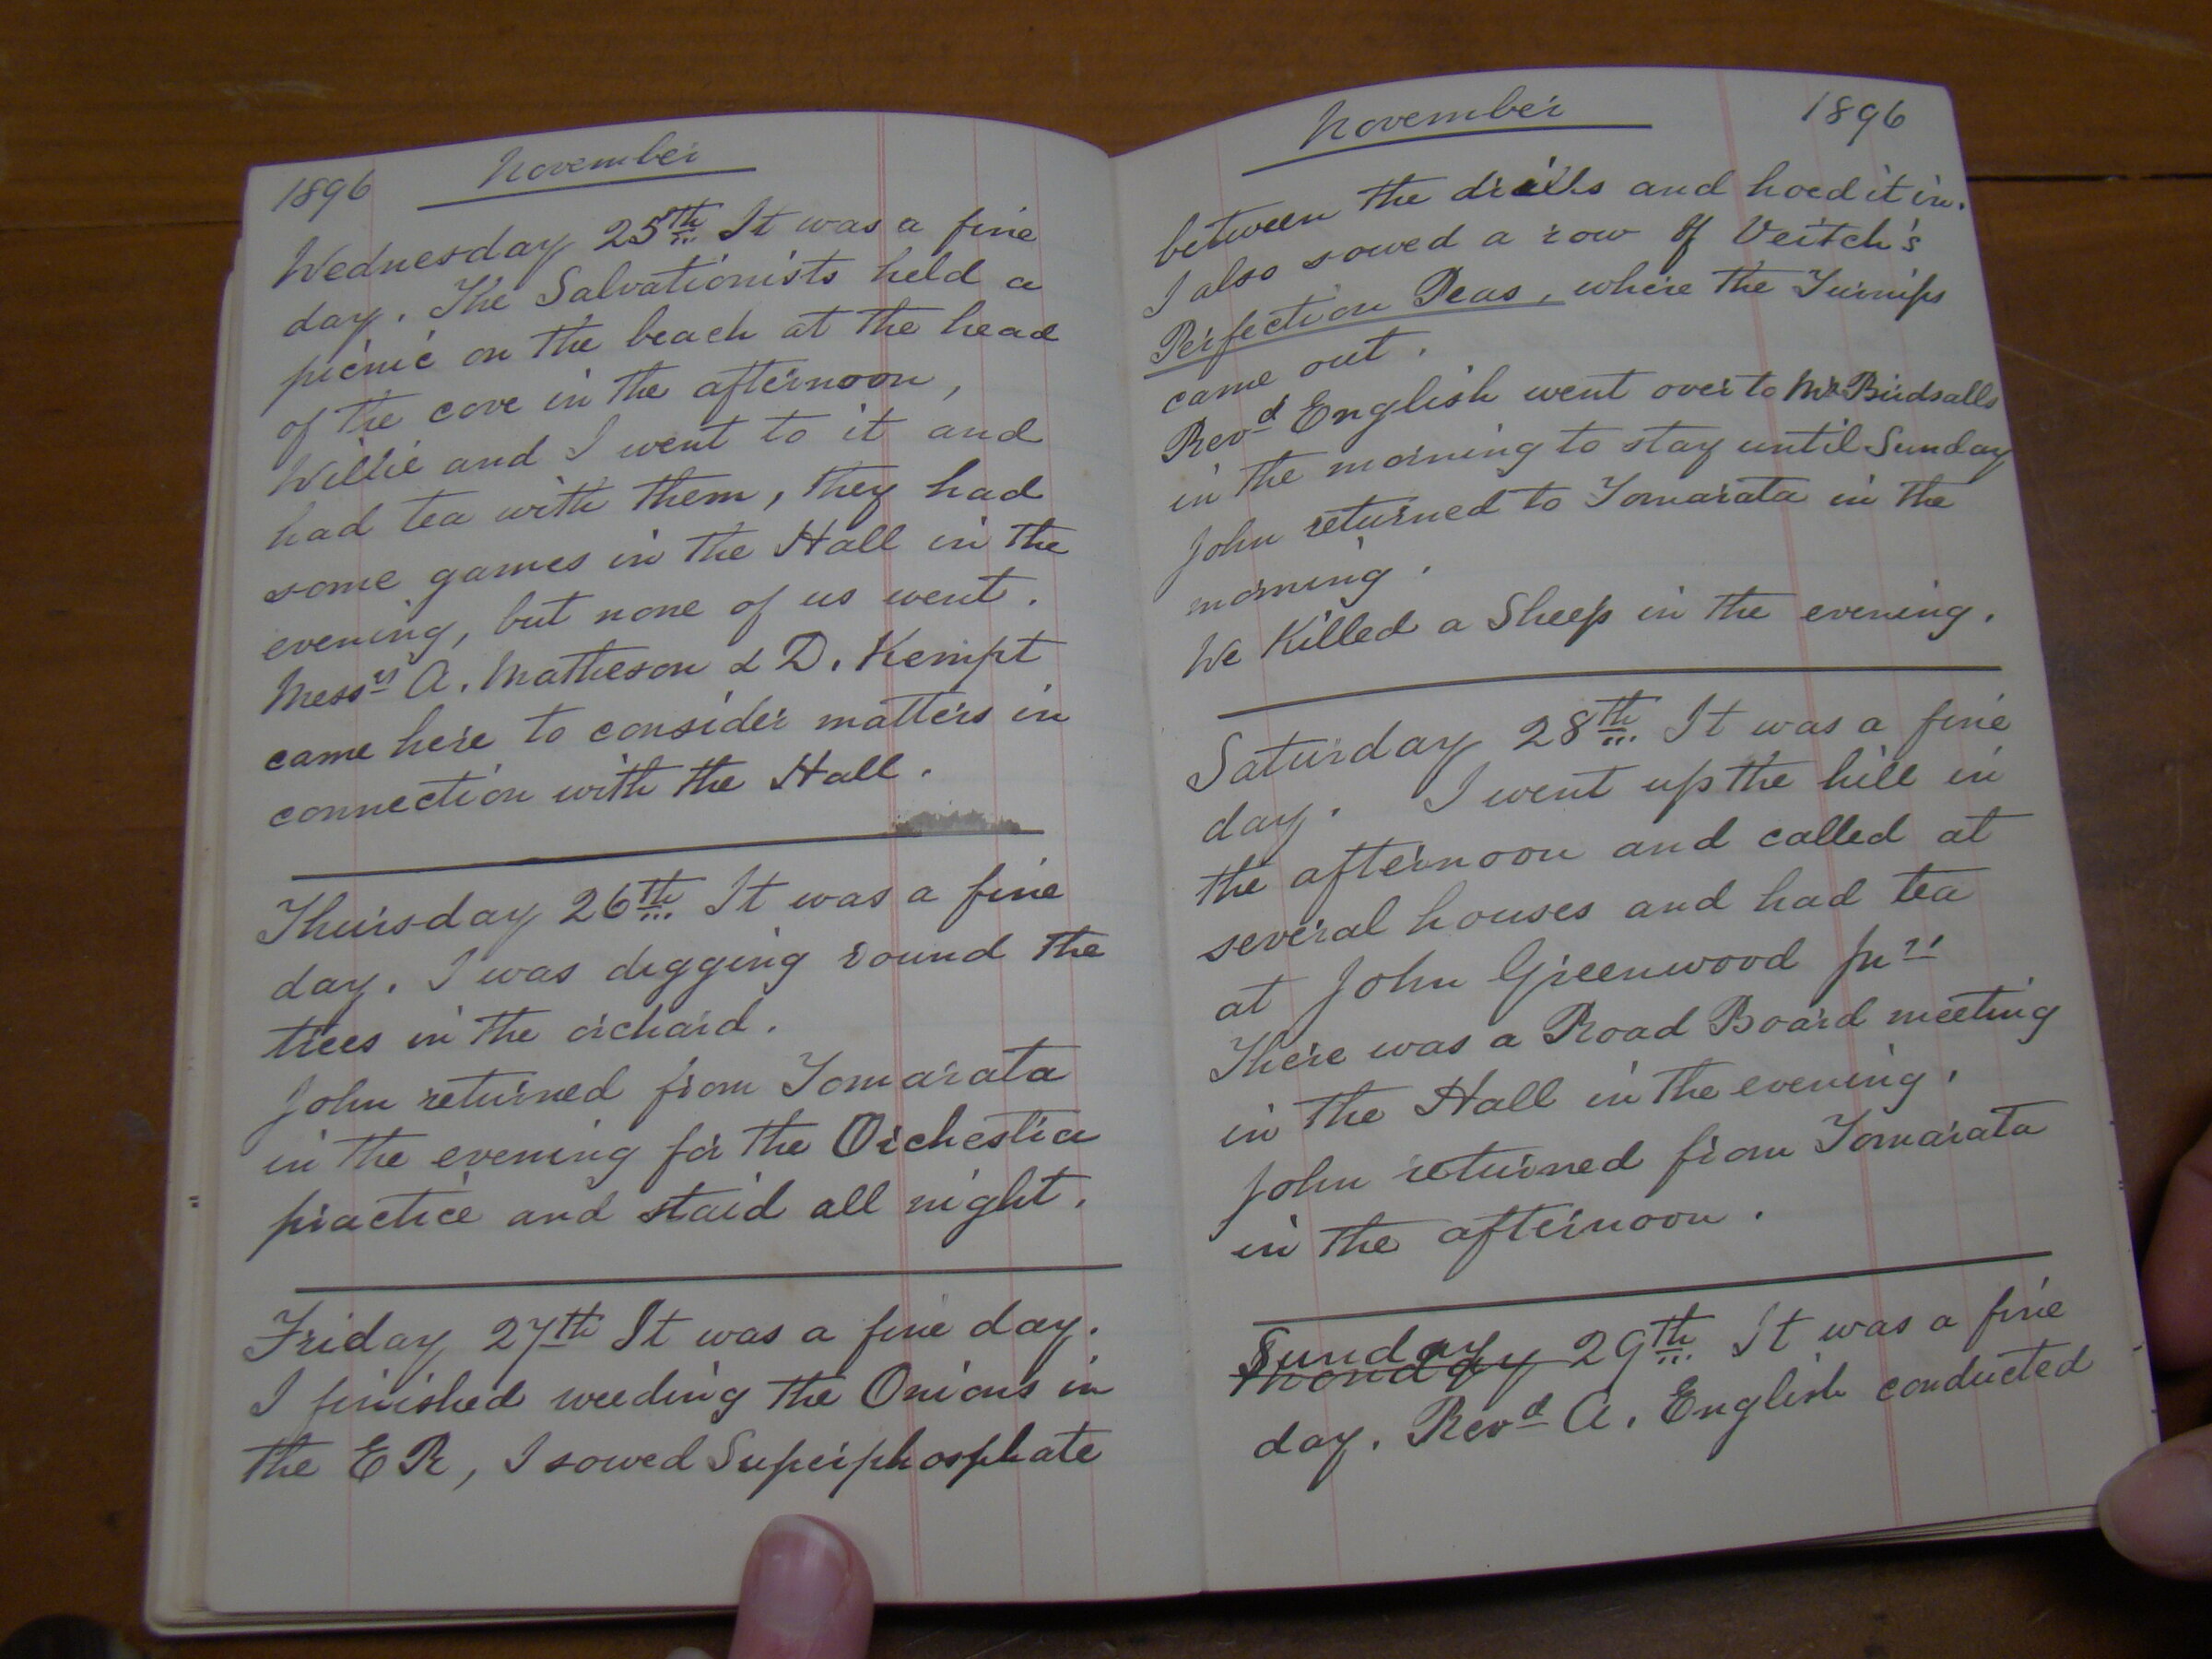 1896 November
Wednesday 25th It was a fine
day. The Salvationists held a
picnic on the beach at the head
of the cove in the afternoon,
Willie and I went to it and
had tea with them, they had
some games in the Hall in the
evening, but none of us went.
Messrs A. Matheson & D. Kempt
came here to consider matters in
connection with the Hall.
Thursday 26th It was a fine
day. I was digging round the
trees in the orchard.
John returned from Tomarata
in the evening for the Orchestra
practice and staid all night.
Friday 27th It was a fine day.
I finished weeding the Onions in
the E R, I sowed Superphosphate
November 1896
between the drills and hoed it in.
I also sowed a row of Veitch's
Perfection Peas, where the Turnips
came out.
Revd English went over to Mr Birdsalls
in the morning to stay until Sunday
John returned to Tomarata in the
morning.
We Killed a Sheep in the evening.
Saturday 28th It was a fine
day. I went up the hill in
the afternoon and called at
several houses and had tea
at John Greenwood Jnrs
There was a Road Board meeting
in the Hall in the evening.
John returned from Tomarata
in the afternoon.
Sunday
Monday 29th It was a fine
day. Revd A. English conducted